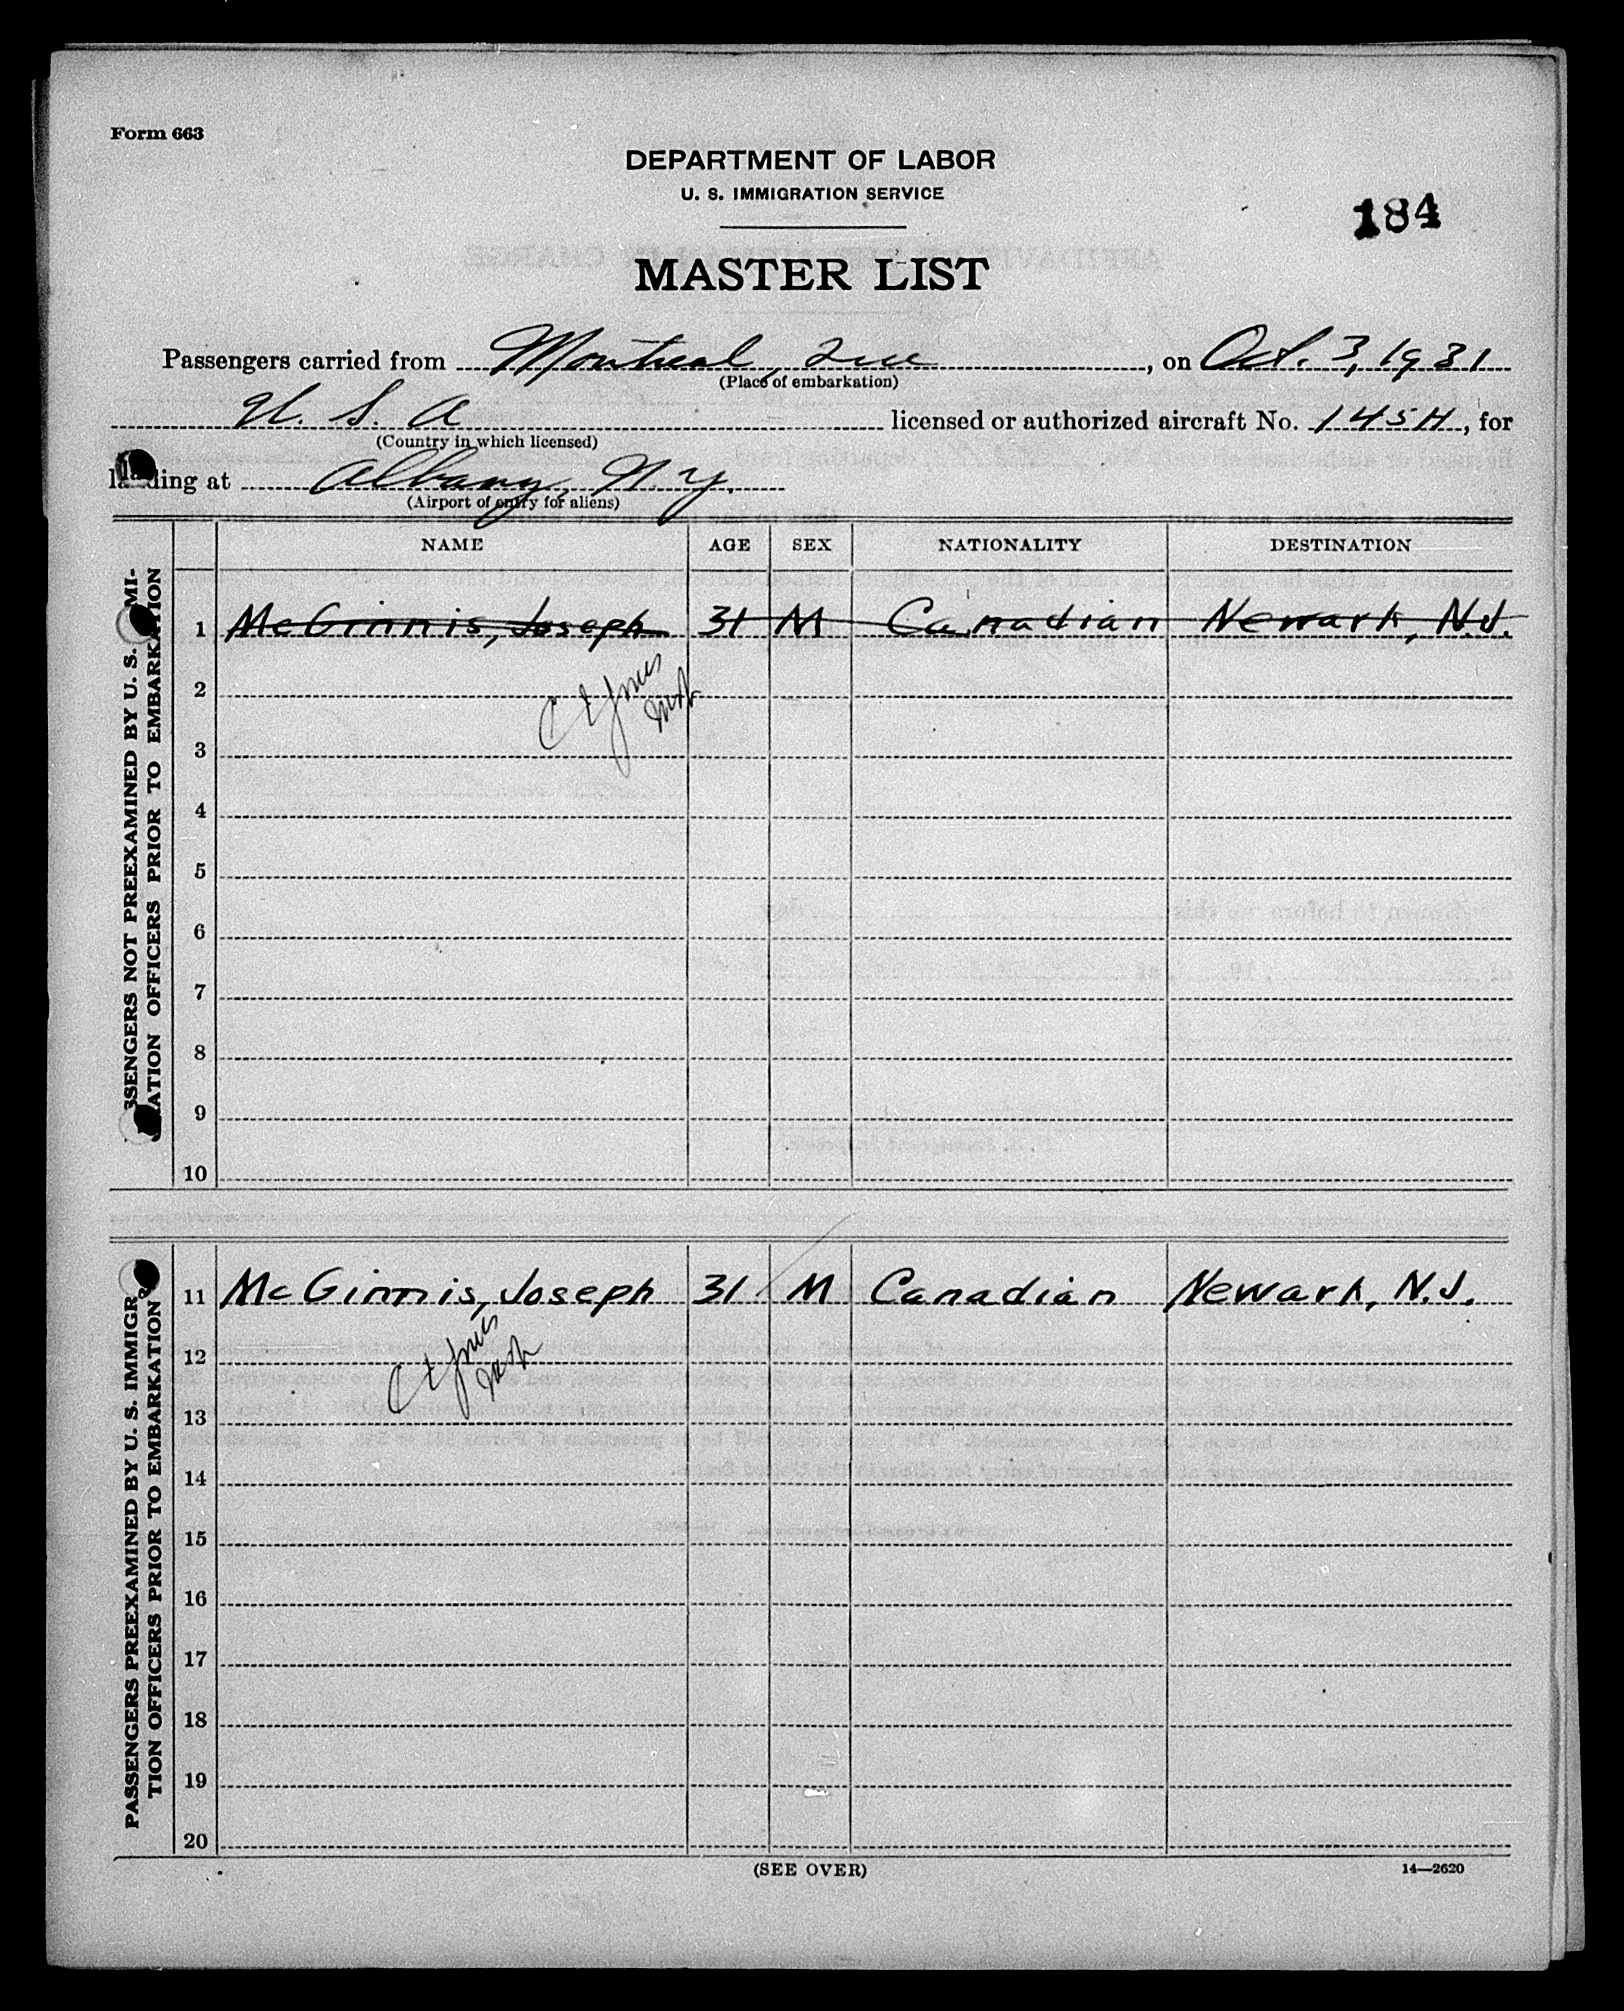 Form 663
DEPARTMENT OF LABOR
U. S. IMMIGRATION SERVICE
184
MASTER LIST
Passengers carried from Montreal, Que, on Oct. 3, 1931
(Place of embarkation)
U. S. A licensed or authorized aircraft No. 145H, for
(Country in which licensed)
landing at Albany, N.Y.
(Airport of entry for aliens)
NAME AGE SEX NATIONALITY DESTINATION
SSENGERS NOT PREEXAMINED BY U. S. IMMI-
ATION OFFICERS PRIOR TO EMBARKATION
1 McGinnis, Joseph 31 M Canadian Newark, N.J.
2
3
4
5
6
7
8
9
10
PASSENGERS PREEXAMINED BY U. S. IMMIGRA
TION OFFICERS PRIOR TO EMBARKATION
11 McGinnis, Joseph 31 M Canadian Newark, N.J.
12
13
14
15
16
17
18
19
20
(SEE OVER) 14—2620